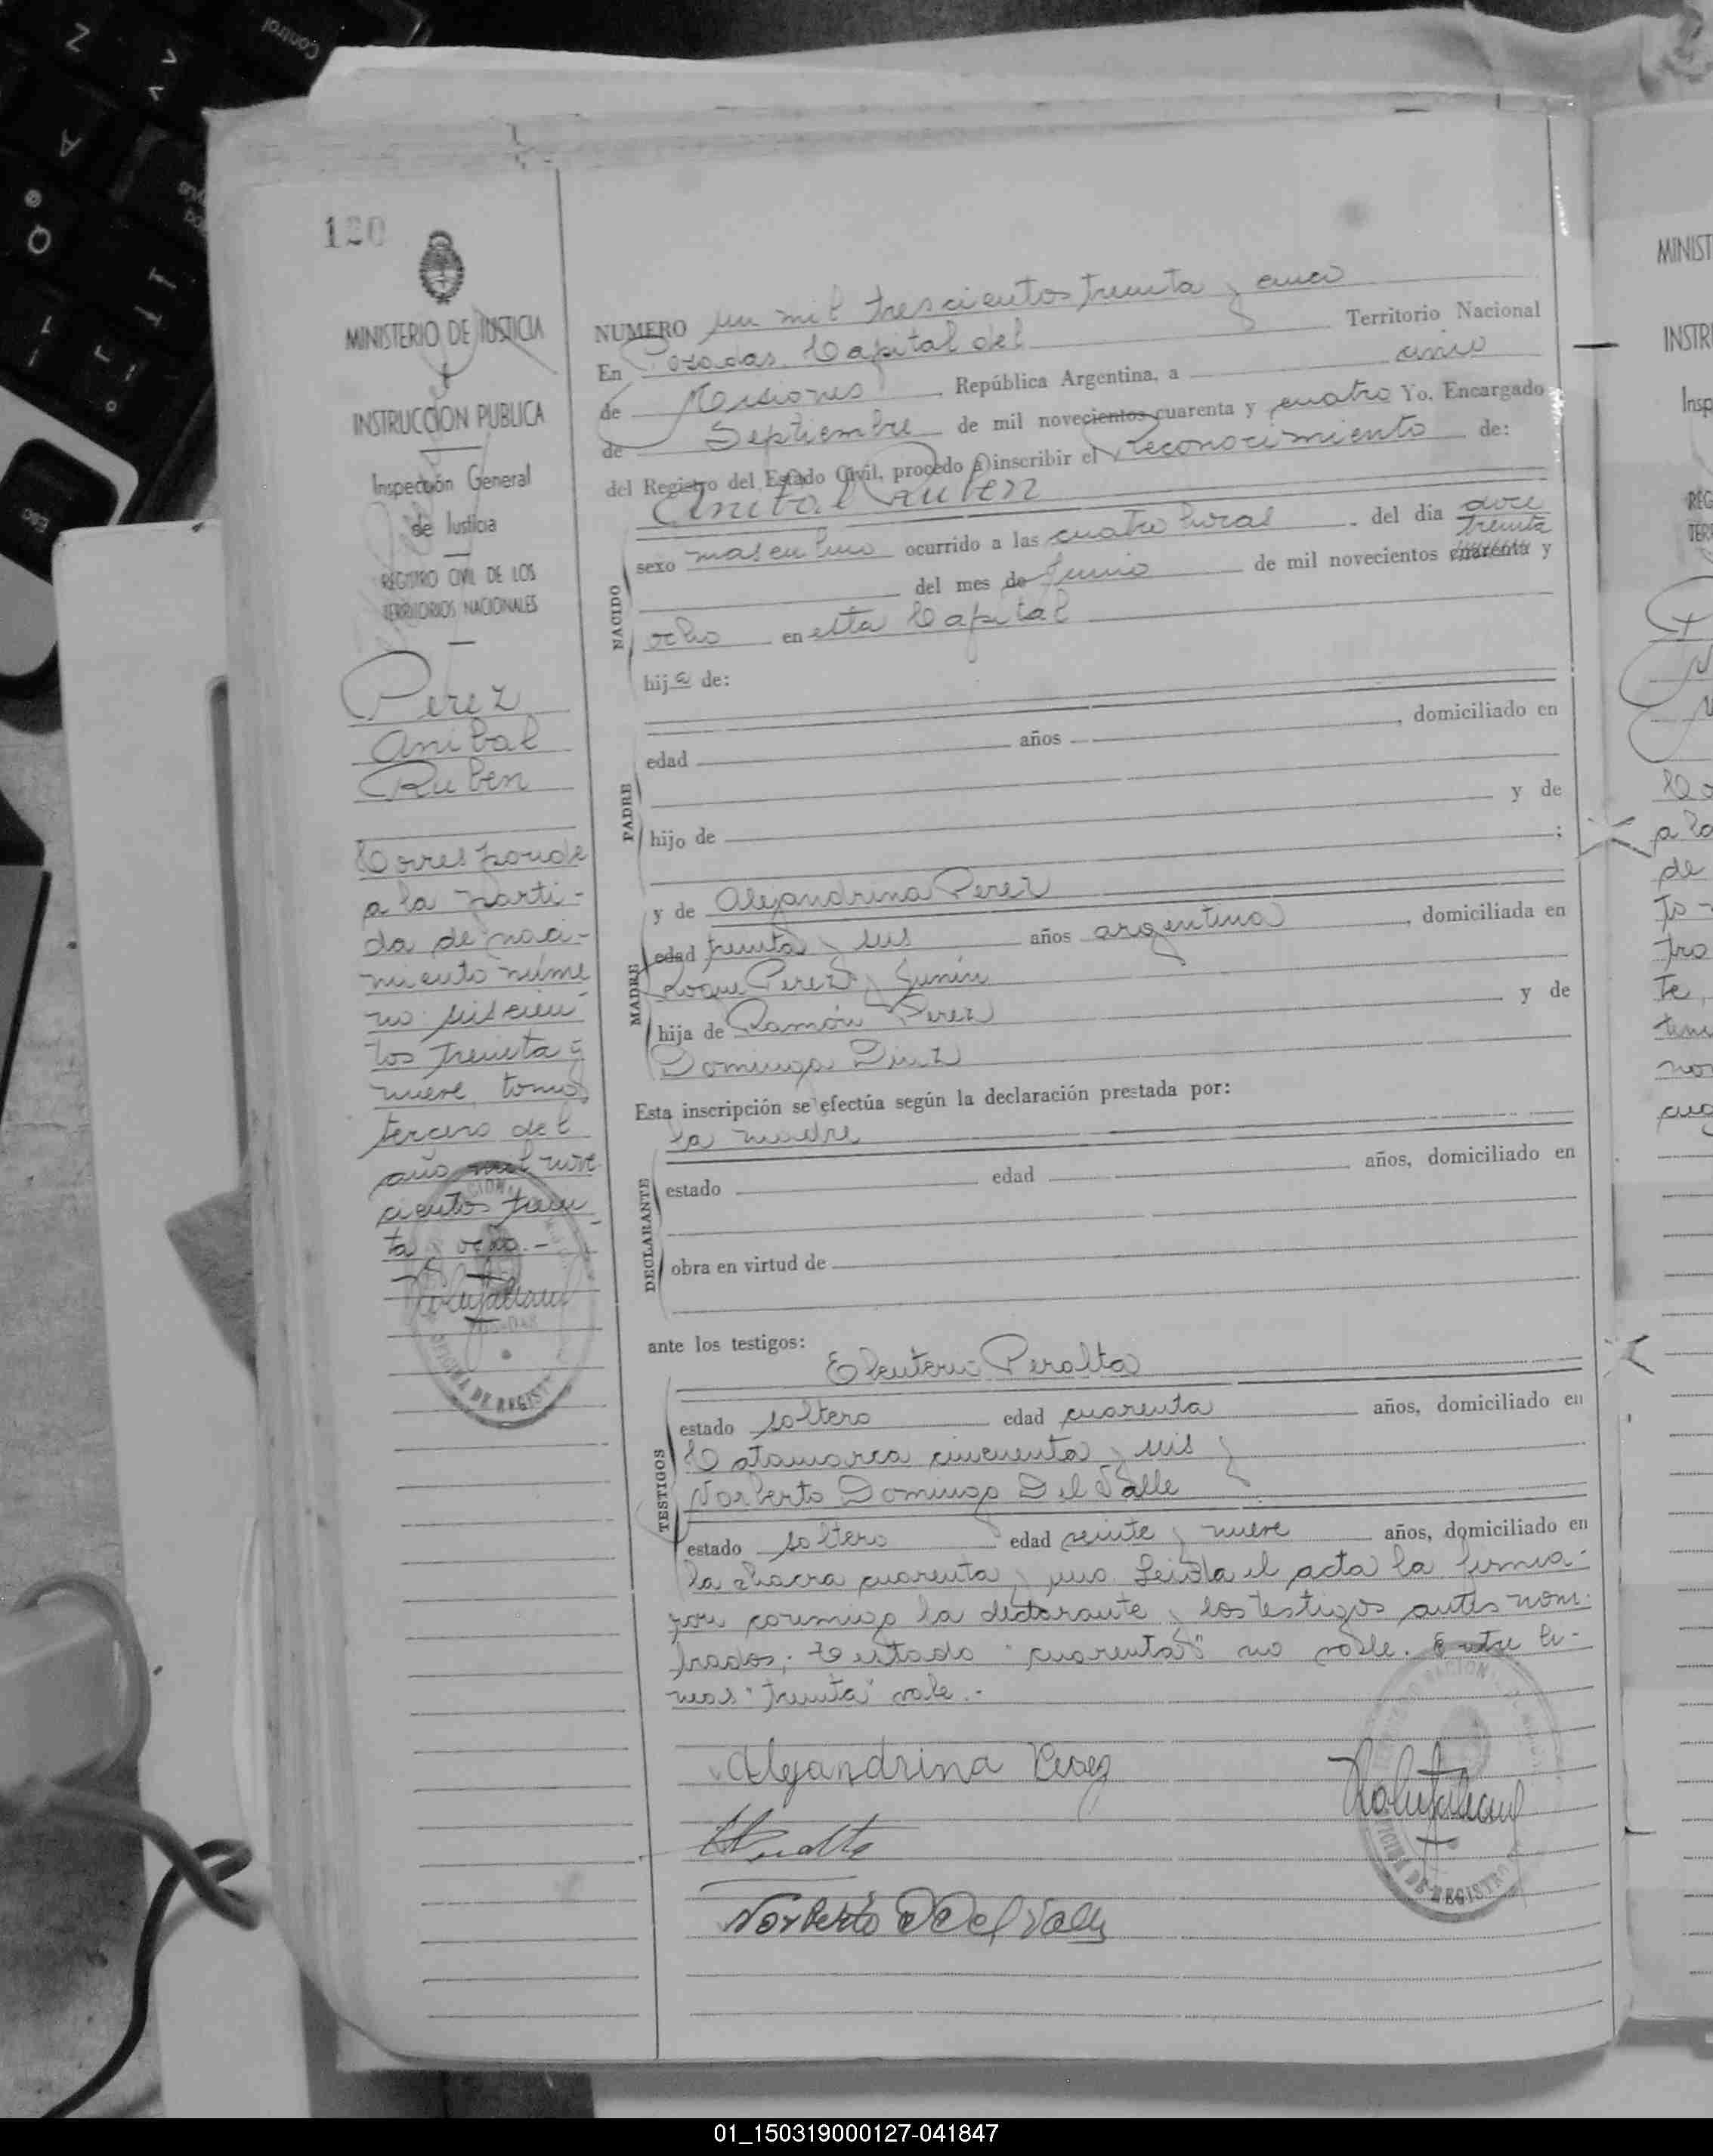 120
MINISTERIO DE JUSTICIA
E
INSTRUCCION PUBLICA
Inspección General
de Justicia
REGISTRO CIVIL DE LOS
TERRITORIOS NACIONALES
Perez
Anibal
Ruben
Corresponde
a la parti-
da de naci-
miento núme
ro seiscien-
tos treinta y
nueve, tomo
tercero del
año mil nove
cientos trein-
ta y ocho.-
NUMERO un mil trescientos treinta y cinco
En Posadas, Capital del Territorio Nacional
de Misiones, República Argentina, a cinco
de Septiembre de mil novecientos cuarenta y cuatro Yo, Encargado
del Registro del Estado Civil, procedo a inscribir el Reconocimiento de:
Anibal Ruben
NACIDO
sexo masculino ocurrido a las cuatro horas del día doce
treinta
del mes de Junio de mil novecientos cuarenta y
ocho en esta Capital
hijo de:
PADRE
edad años , domiciliado en
y de
hijo de ;
MADRE
y de Alejandrina Perez
edad treinta y seis años argentina, domiciliada en
Roque Perez y Junín
hija de Ramón Perez y de
Dominga Diaz
Esta inscripción se efectúa según la declaración prestada por:
la madre
DECLARANTE
estado edad años, domiciliado en
obra en virtud de
ante los testigos:
Eleuterio Peralta
TESTIGOS
estado soltero edad cuarenta años, domiciliado en
Catamarca cincuenta y seis y
Norberto Domingo Del Valle
estado soltero edad veinte y nueve años, domiciliado en
la chacra cuarenta y uno. Leida el acta la firma-
ron conmigo la declarante y los testigos antes nom-
brados; Testado "cuarenta" no vale. Entre li-
neas "treinta" vale.-
Alejandrina Perez
Peralta
Norberto D Del Valle
OFICINA DE REGISTRO
MINIST
INSTR
Insp
REG
TERR
01_150319000127-041847